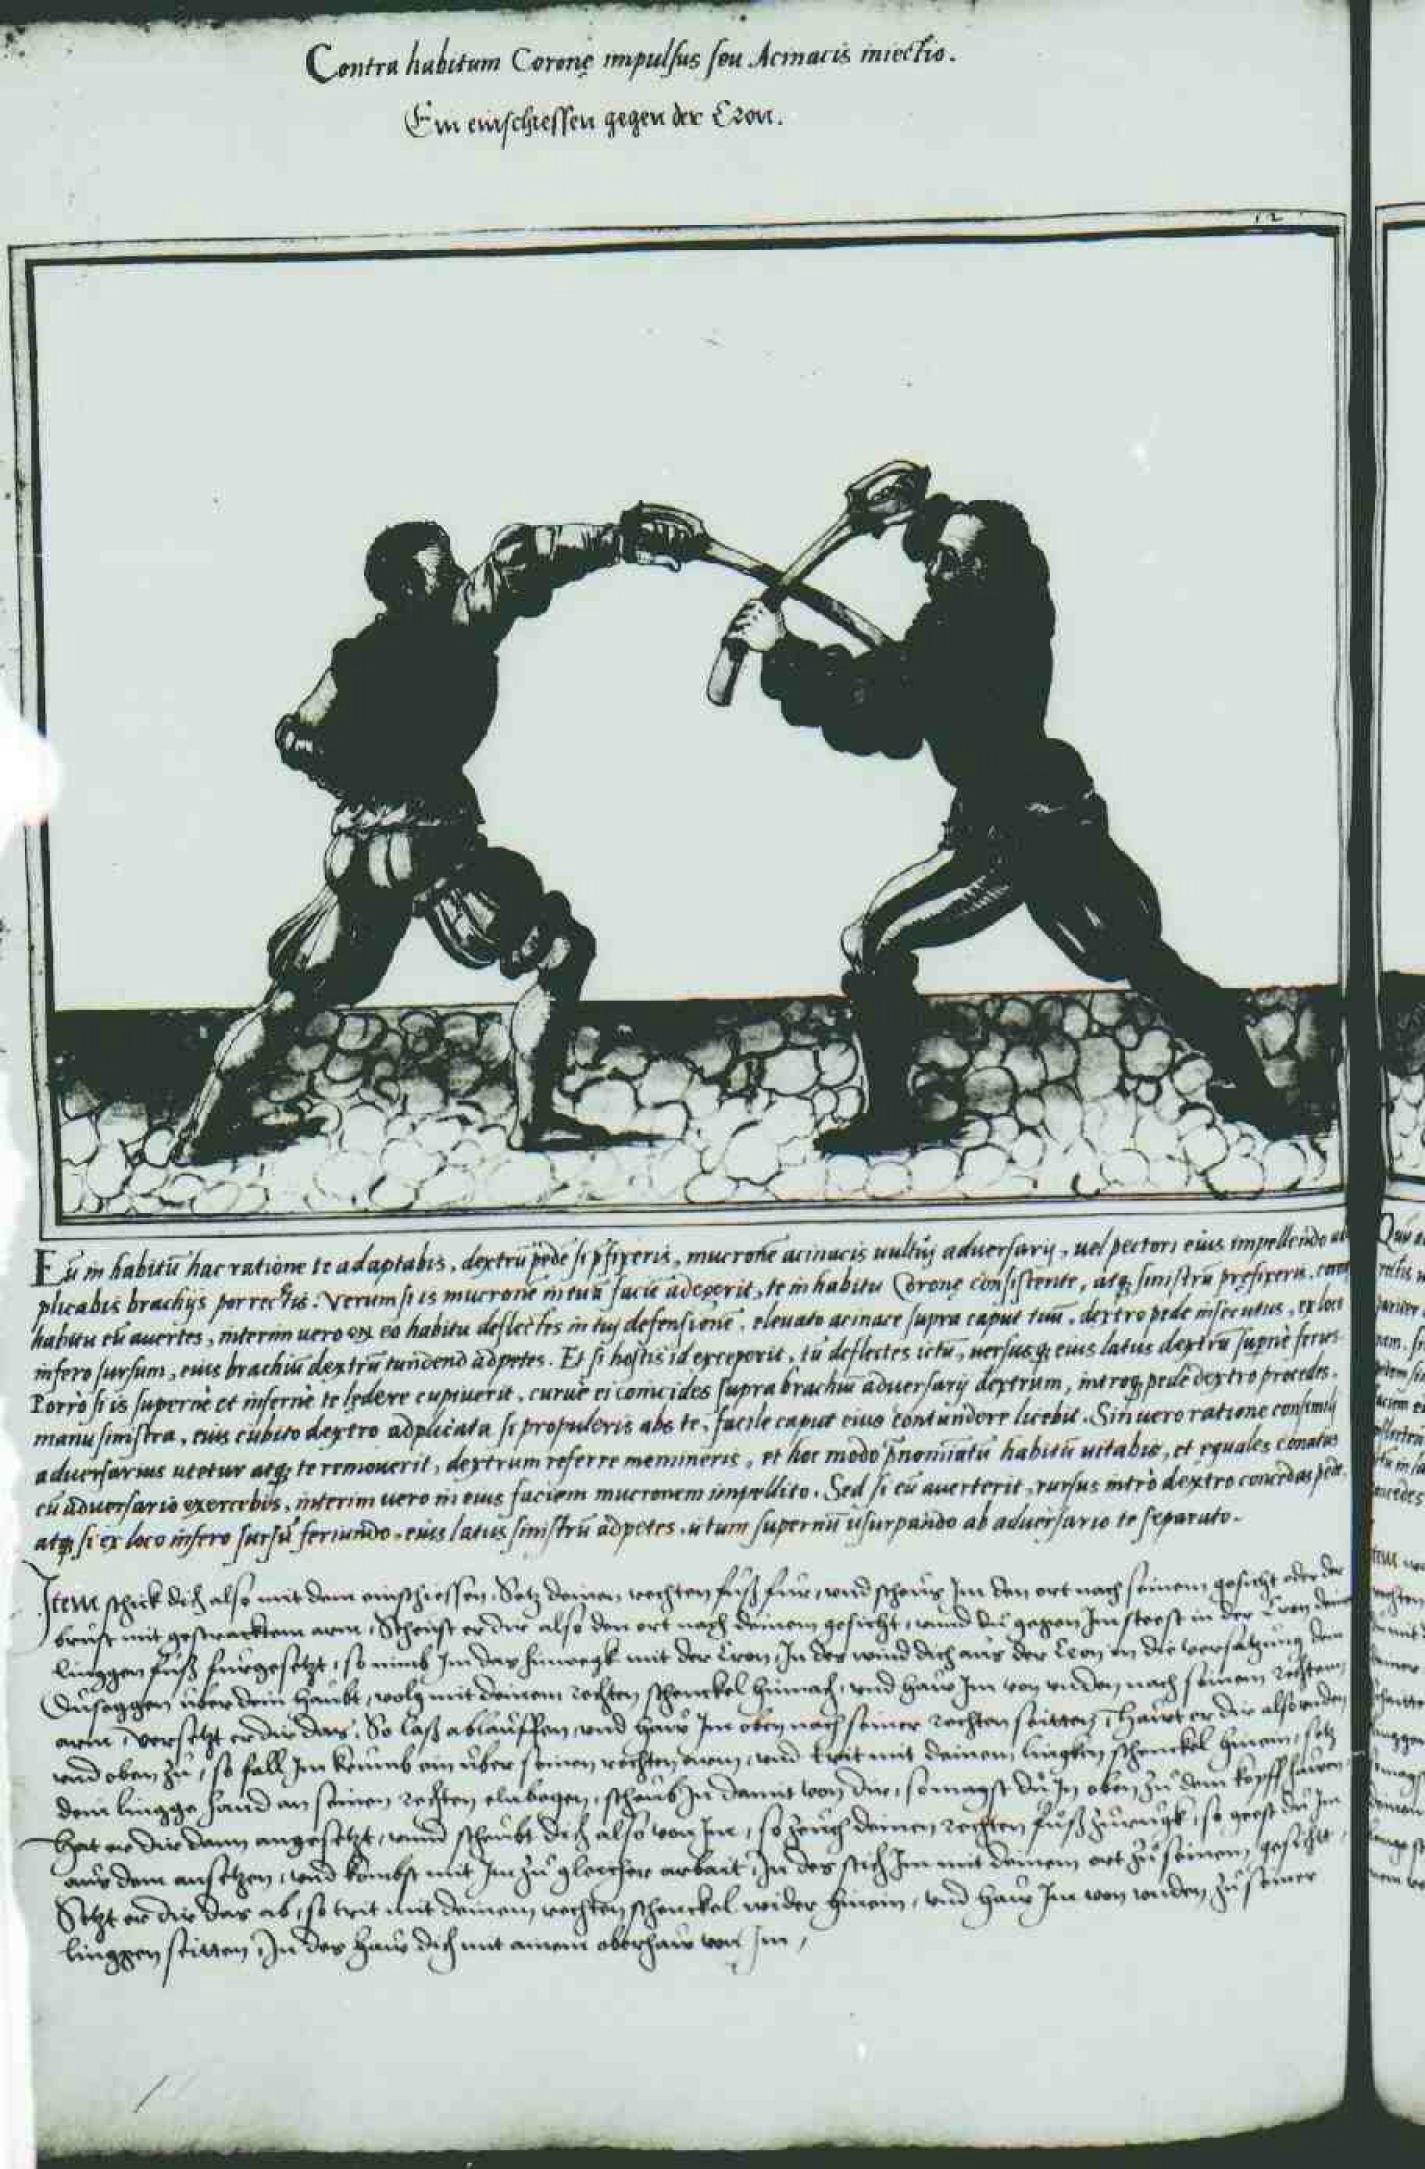 Contra habitum Coronę impulsus seu Acinacis iniectio.
Ein einschiessen gegen der Cron.
12
Eū in habitū hac ratione te adaptabis, dextrū pede si p̄fixeris, mucrone acinacis vultuj adversarij, vel pectori eius impellendo
plicabis brachijs porrectis. Verum si is mucronē in tuā faciē adegerit, te in habitu Coronę consistente, atq; sinistrū prefixeris,
habitu eū avertes, interim vero ex eo habitu deflectes in tuj defensionē, elevato acinace supra caput tuū, dextro pede insecutus, ex loco
infero sursum, eius brachiū dextrū tundendo adpetes. Et si hostis id exceperit, tu deflectes ictū, versusq; eius latus dextrū supernè feries.
Porrò si is supernè et infernè te lędere cupiverit, curvè ei concides supra brachiū adversarij dextrum, introq; pede dextro procedes.
manu sinistra, eius cubito dextro adplicata si propuleris abs te, facile caput eius contundere licebit. Sin vero ratione consimili
adversarius utetur atq; te removerit, dextrum referre memineris, et hoc modo p̄nominatū habitū vitabis, et ęquales conatus
cū adversario exercebis, interim vero in eius faciem mucronem impellito. Sed si eū averterit, rursus intrò dextro concedas pede.
atq; si ex loco infero sursū feriundo, eius latus sinistrū adpetes, utum supernū usurpando ab adversario te separato.
Item schick dich also mit dem einschiessen. Setz deinen rechten fuß für, und scheus Im den ort nach seinem gesicht oder der
brust mit gestracktem arm, Scheust er dir also den ort nach deinem gesicht, unnd du gegen Im steest in der Cron dein
linggen fuß furgesetzt, so nimb Im das hinwegk mit der Cron, In des wind dich aus der Cron in die versatzung dein
Duseggen über dein haubt, volg mit deinem rechten schenckel hinnach, und haw Im von unden nach seinem rechten
arm, versetzt er dir das, So laß ablauffen, und haw Im oben nach seiner rechten seitten, Hawt er dir also unden
und oben zu, so fall Im krumb ein über seinen rechten arm, und trit mit deinem linggen schenckel hinein, setz
dein lingge hand an seinen rechten elnbogen, scheub In damit von dir, so magst du In oben zu dem kopff hawen,
Hat er dir dann angesetzt, unnd scheubt dich also von Im, so zeuch deinen rechten fuß zurugk, so geest du Im
aus dem ansetzen, und kombst mit Im zu gleicher arbait, In des stich Im mit deinem ort zu seinem gesicht,
Setzt er dir das ab, so trit mit deinem rechten schenckel wider hinein, und haw Im von unden zu seiner
linggen seitten, In des haw dich mit ainem oberhaw von Im,